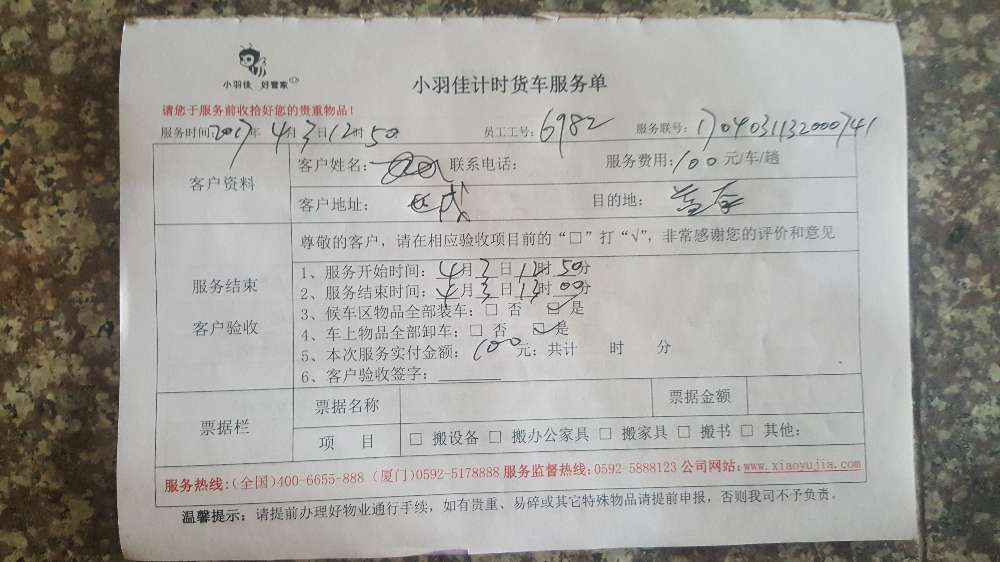 小羽佳 好管家
小羽佳计时货车服务单
请您于服务前收拾好您的贵重物品！
服务时间:2017年 4月3日12时50 员工工号：6982 服务联号：1704031132000741
客户资料
客户姓名： 联系电话： 服务费用：100元/车/趟
客户地址： 目的地：
服务结束
客户验收
尊敬的客户，请在相应验收项目前的“□”打“√”，非常感谢您的评价和意见
1、服务开始时间：4月3日12时50分
2、服务结束时间：4月3日13时00分
3、候车区物品全部装车：□ 否 ☑ 是
4、车上物品全部卸车：□ 否 ☑ 是
5、本次服务实付金额：100元；共计 时 分
6、客户验收签字：
票据栏
票据名称 票据金额
项 目 □ 搬设备 □ 搬办公家具 □ 搬家具 □ 搬书 □ 其他：
服务热线:(全国)400-6655-888 (厦门)0592-5178888 服务监督热线:0592-5888123 公司网站:www.xiaoyujia.com
温馨提示：请提前办理好物业通行手续，如有贵重、易碎或其它特殊物品请提前申报，否则我司不予负责。